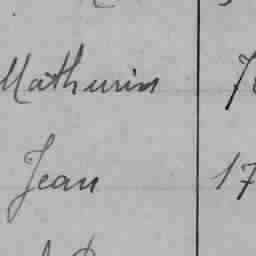 Mathurin
Jean 17